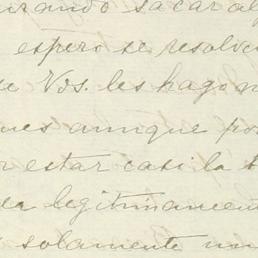 sacar al
espero se resolve
Vds. les hago
ues aunque po
estar casi la
legitimamen
solamente un